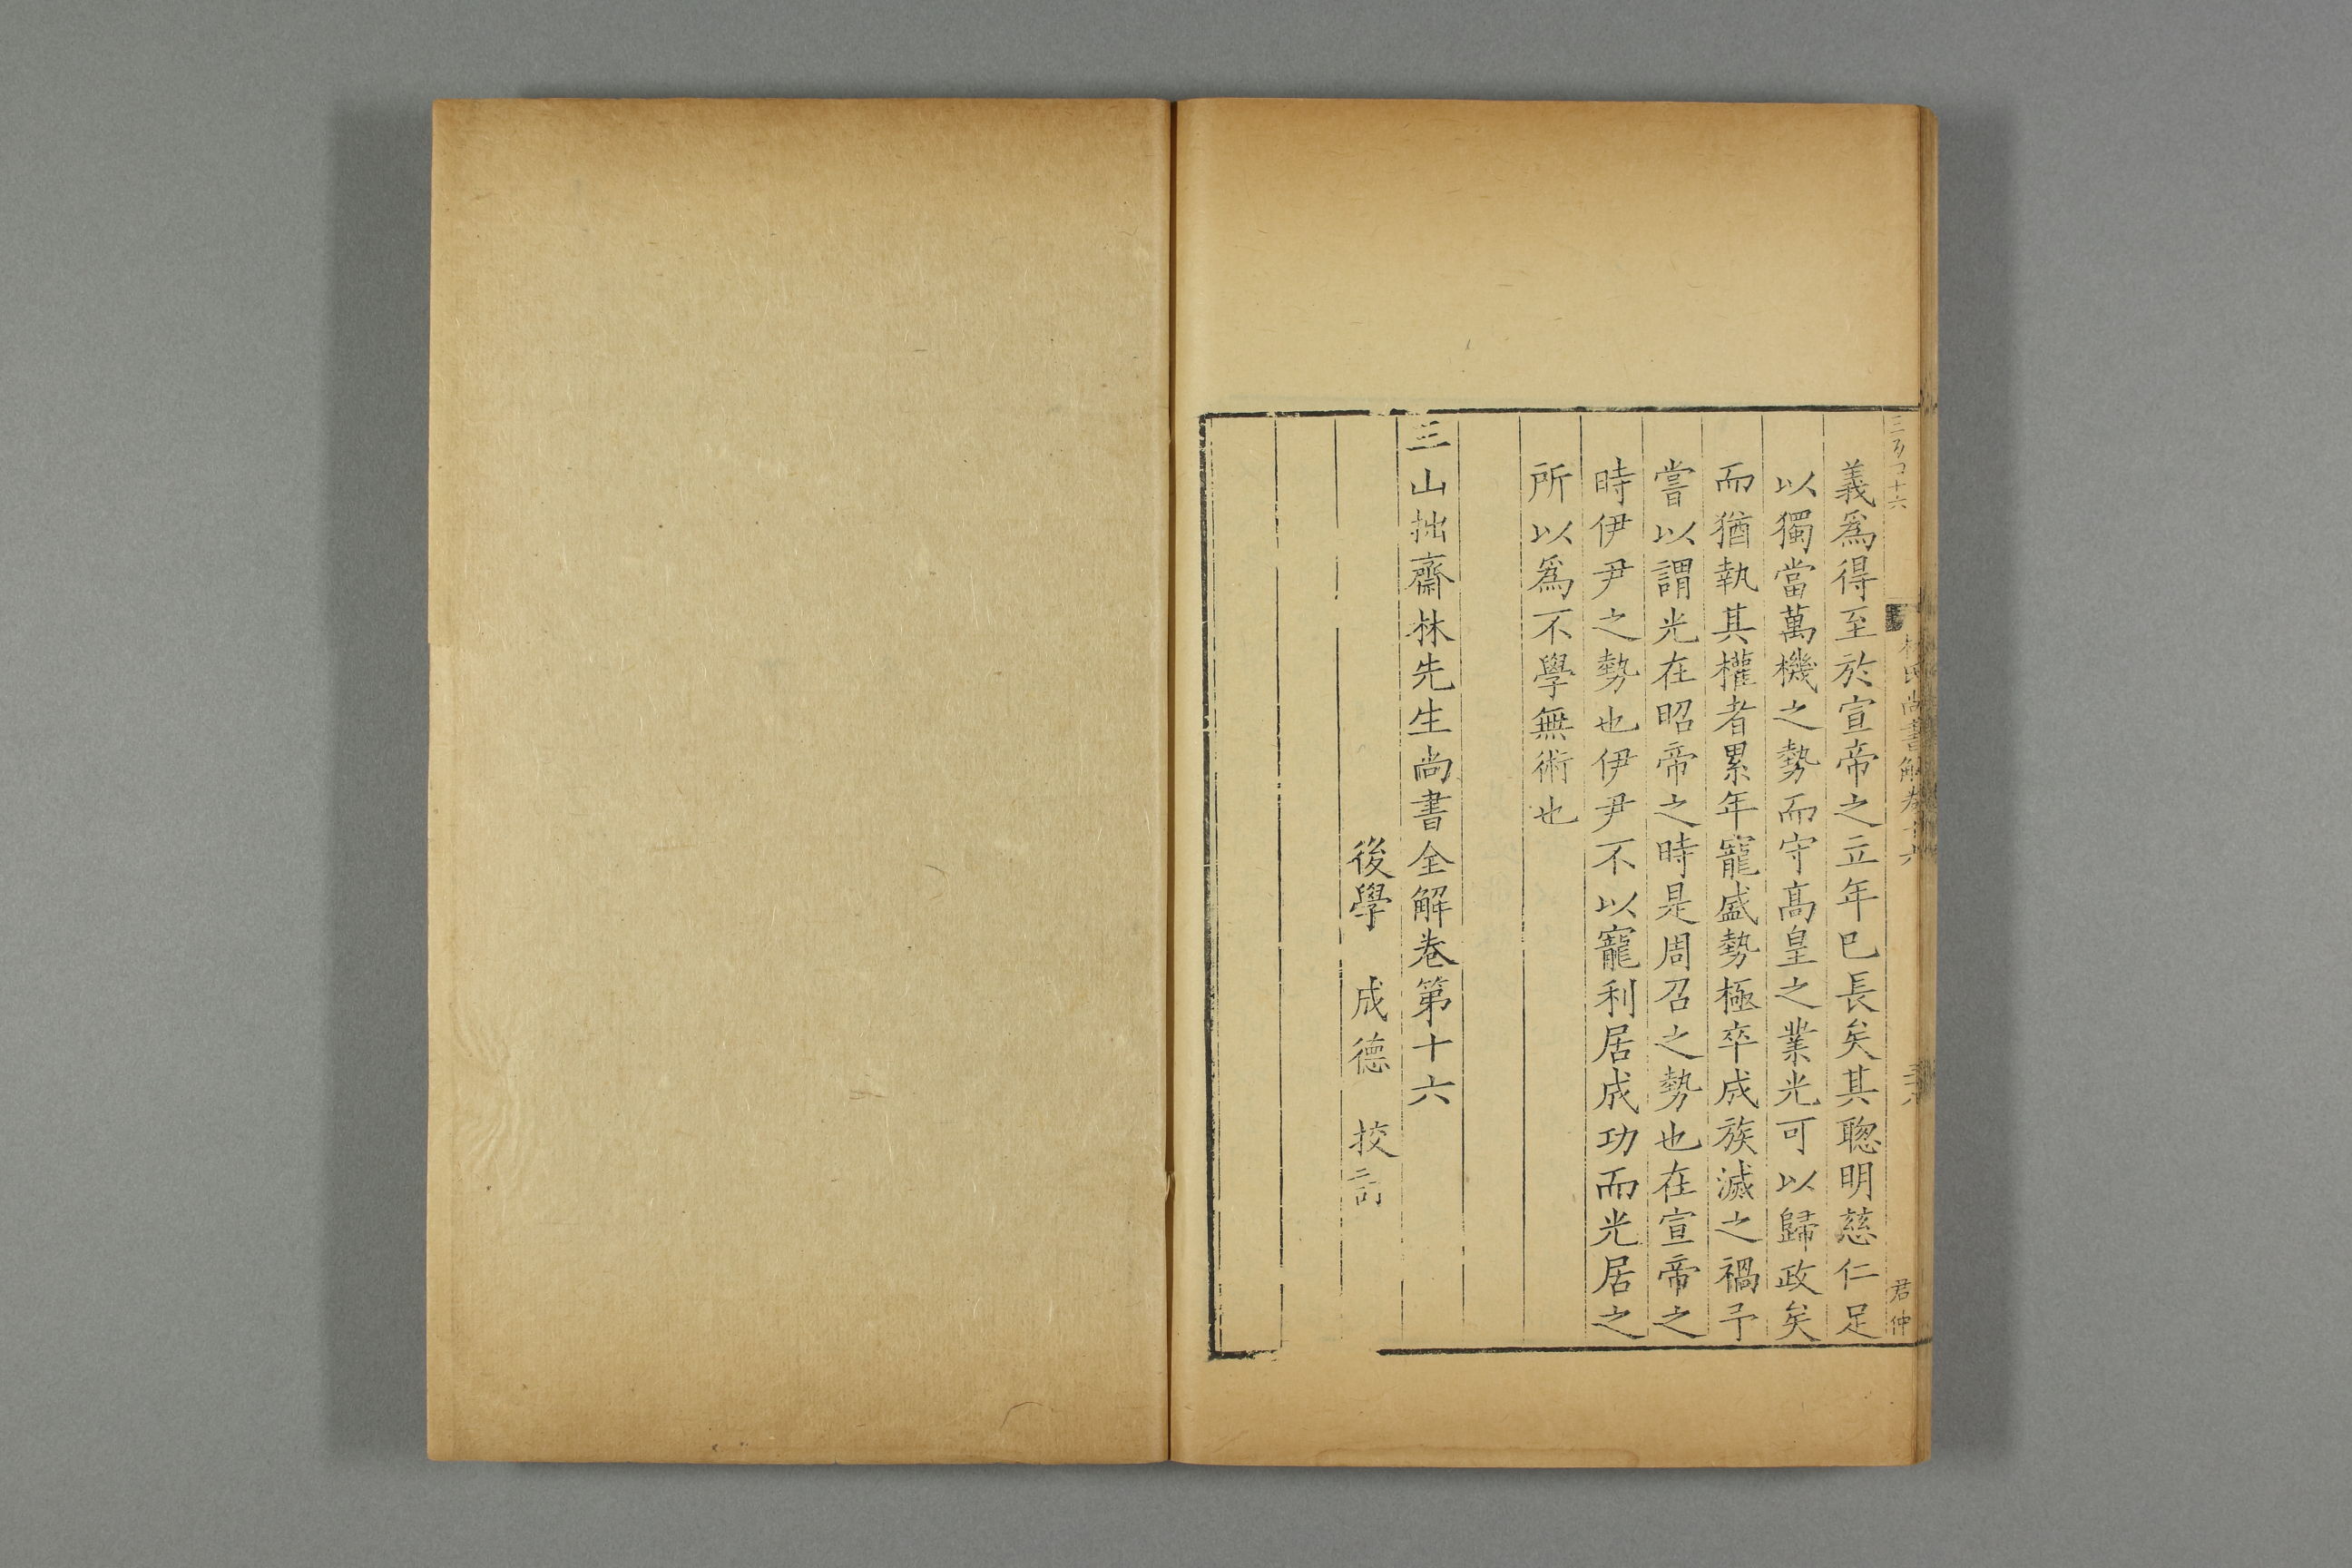 義爲得至於宣帝之立年巳長矣其聦明慈仁足
以獨當萬機之勢而守髙皇之業光可以歸政矣
而猶執其權者累年寵盛勢極卒成族滅之禍予
嘗以謂光在昭帝之時是周召之勢也在宣帝之
時伊尹之勢也伊尹不以寵利居成功而光居之
所以爲不學無術也
三山拙齋林先生尚書全解卷第十六
後學 成德 挍訂
林氏尚書解卷十六
君仲